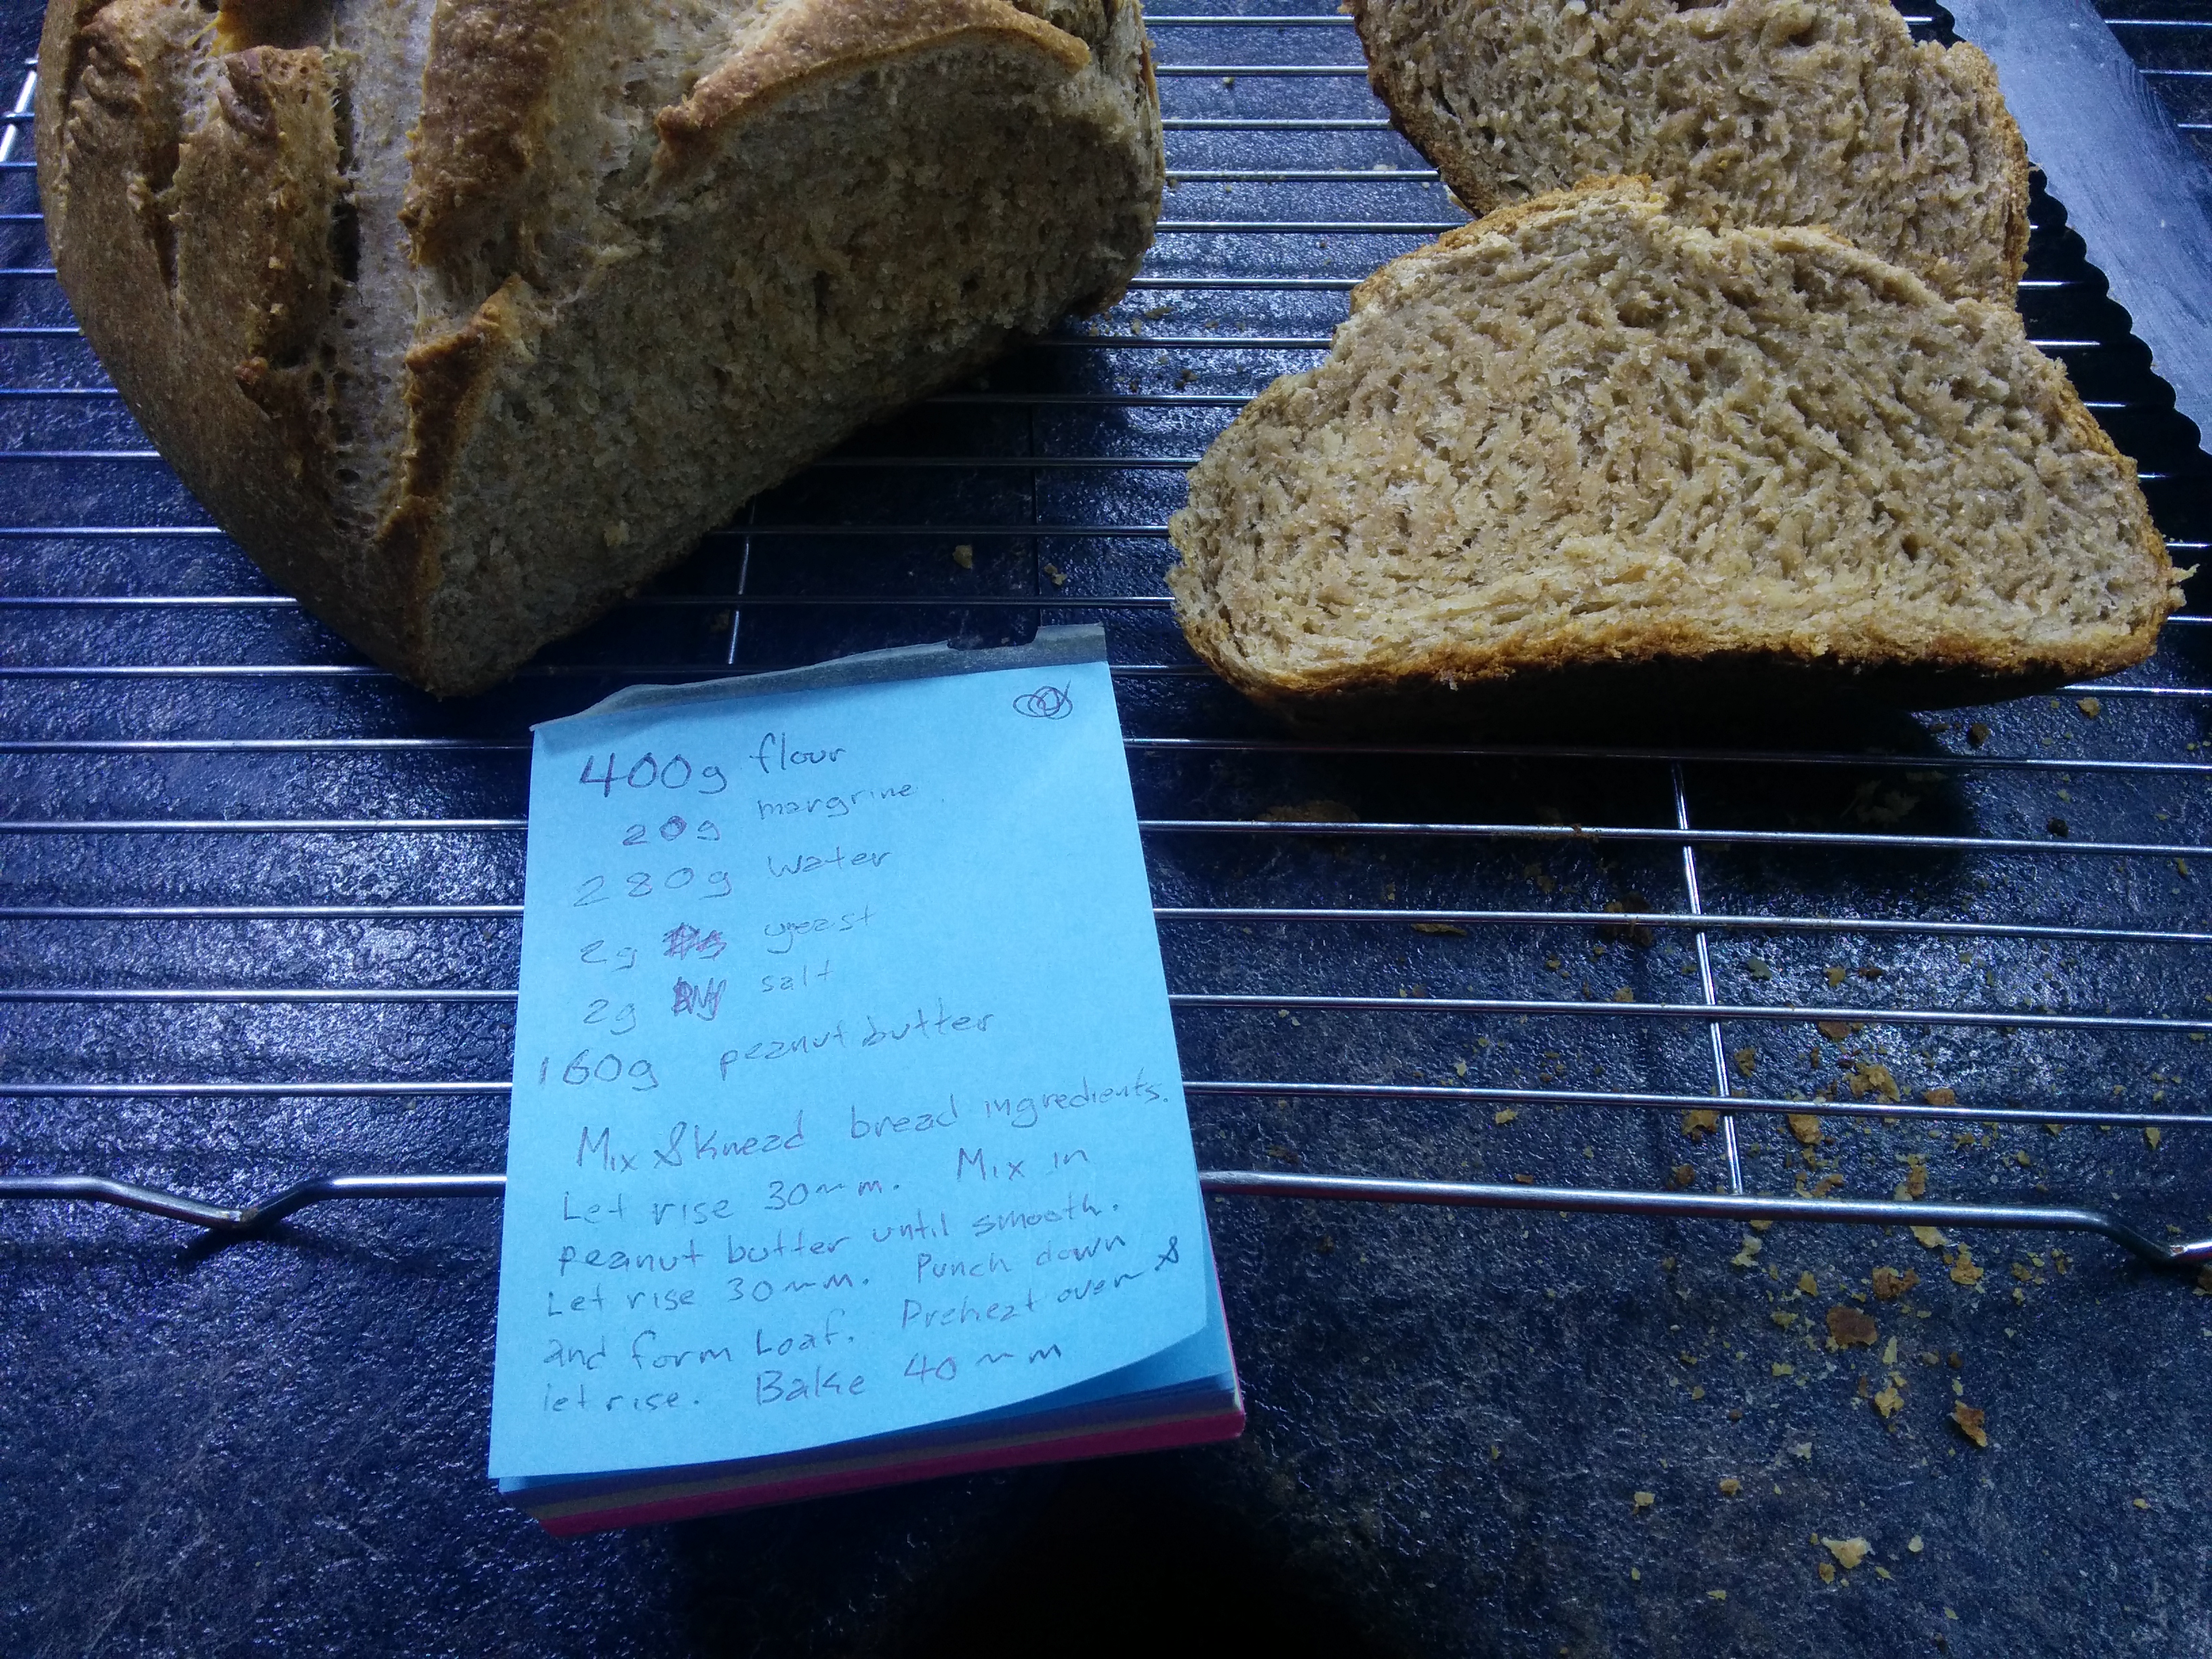 400g flour
20g margrine
280g water
2g yeast
2g salt
160g peanut butter
Mix & Knead bread ingredients.
Let rise 30 min. Mix in
peanut butter until smooth.
Let rise 30 min. Punch down
and form Loaf. Preheat oven &
let rise. Bake 40 min